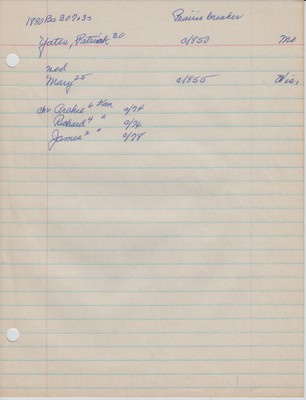 1880 Ba 307:33 Prairie breaker
Yates, Patrick 30 c/1850 Mo
md
Mary 25 c/1855 Wis,
ch: Archie 6 Kan c/74
Richard 4 " c/76
James 2 " c/78